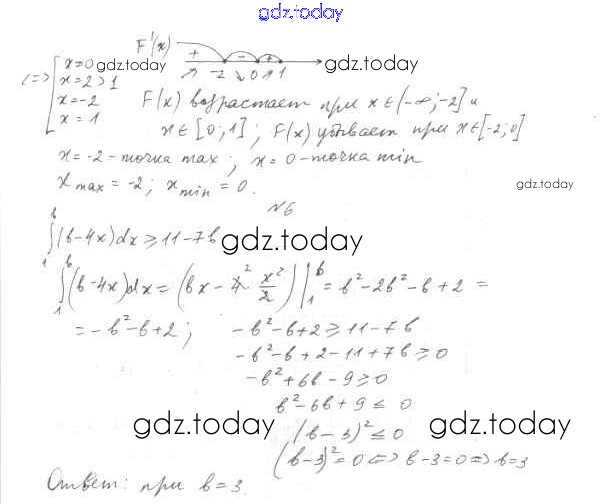 gdz.today
F'(x) + - +
-2 0 1 gdz.today
<=> [ x=0 gdz.today
x=2>1
x=-2 F(x) возрастает при x∈(-∞;-2] и
x=1 x∈[0;1]; F(x) убывает при x∈[-2;0]
x=-2 - точка max; x=0 - точка min
x max = -2; x min = 0. gdz.today
№6
∫₁ᵇ(b-4x)dx ≥ 11-7b gdz.today
∫₁ᵇ(b-4x)dx = (bx - 4 x²/2)|₁ᵇ = b²-2b²-b+2 =
= -b²-b+2; -b²-b+2 ≥ 11-7b
-b²-b+2-11+7b ≥ 0
-b²+6b-9 ≥ 0
b²-6b+9 ≤ 0
gdz.today (b-3)² ≤ 0 gdz.today
(b-3)²=0 <=> b-3=0 => b=3
Ответ: при b=3.